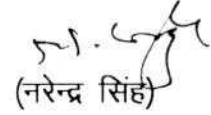 (नरेन्द्र सिंह)